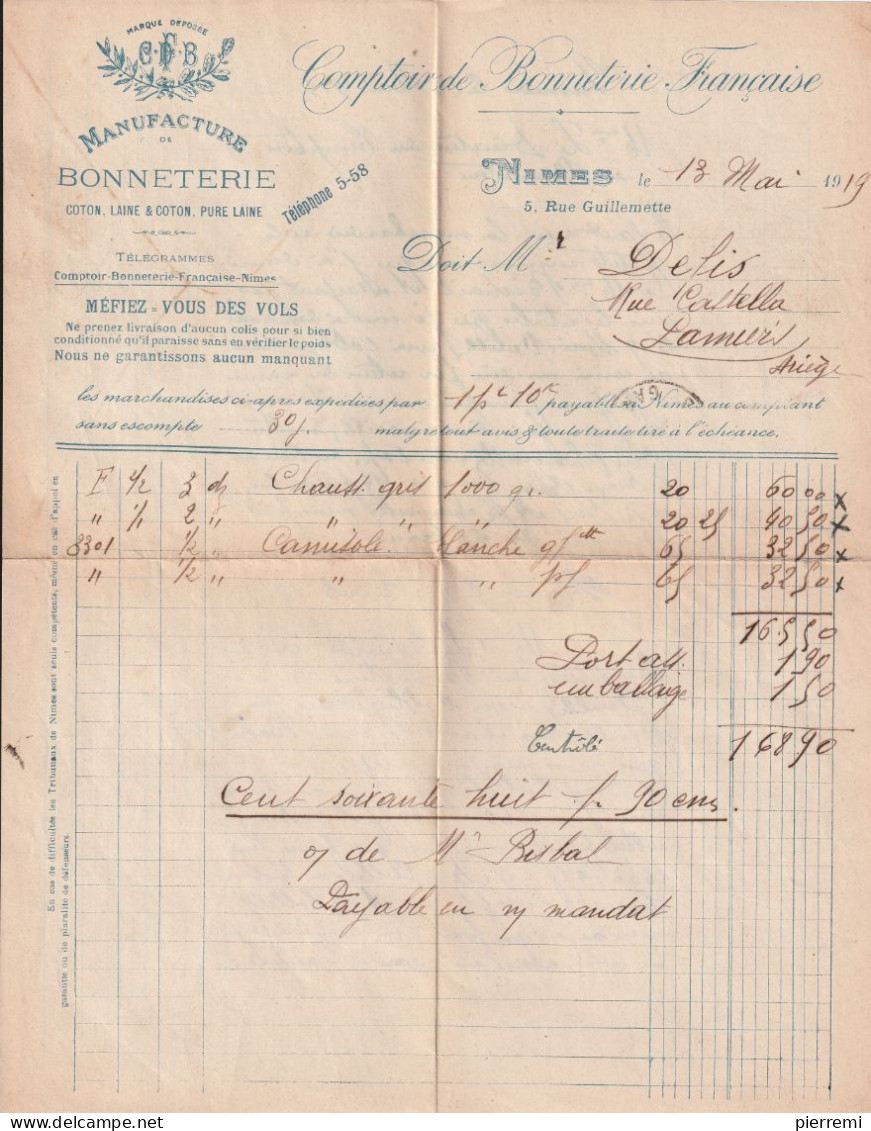 MARQUE DEPOSÉE
C F B
MANUFACTURE
DE
BONNETERIE
COTON, LAINE & COTON, PURE LAINE
Téléphone 5-58
TÉLÉGRAMMES
Comptoir-Bonneterie-Française-Nimes
MÉFIEZ-VOUS DES VOLS
Ne prenez livraison d'aucun colis pour si bien
conditionné qu'il paraisse sans en vérifier le poids
Nous ne garantissons aucun manquant
Comptoir de Bonneterie Française
NIMES le 13 Mai 1919
5, Rue Guillemette
Doit Mr Delis
Rue Castella
Pamiers
Ariège
les marchandises ci-apres expédiées par payables à Nimes au comptant
sans escompte 30j. malgré tout avis & toute traite tiré à l'échéance.
F 4/2 3 dz Chauss. gris 1000 gr. 20 60 00 x
" 1/1 2 " " " " 20 25 40 50 x
3301 1/2 " Camisole Blanche gf 65 32 50 x
" 1/2 " " " pf 65 32 50 x
165 50
Port att. 1 90
emballage 1 50
Contrôlé 168 90
Cent soixante huit f. 90 cms.
de Mr Bisbal
Payable en m/ mandat
En cas de difficultés les Tribunaux de Nimes sont seuls compétents, même en cas d'appel en
garantie ou de pluralité de défenseurs.
www.delcampe.net
pierremi